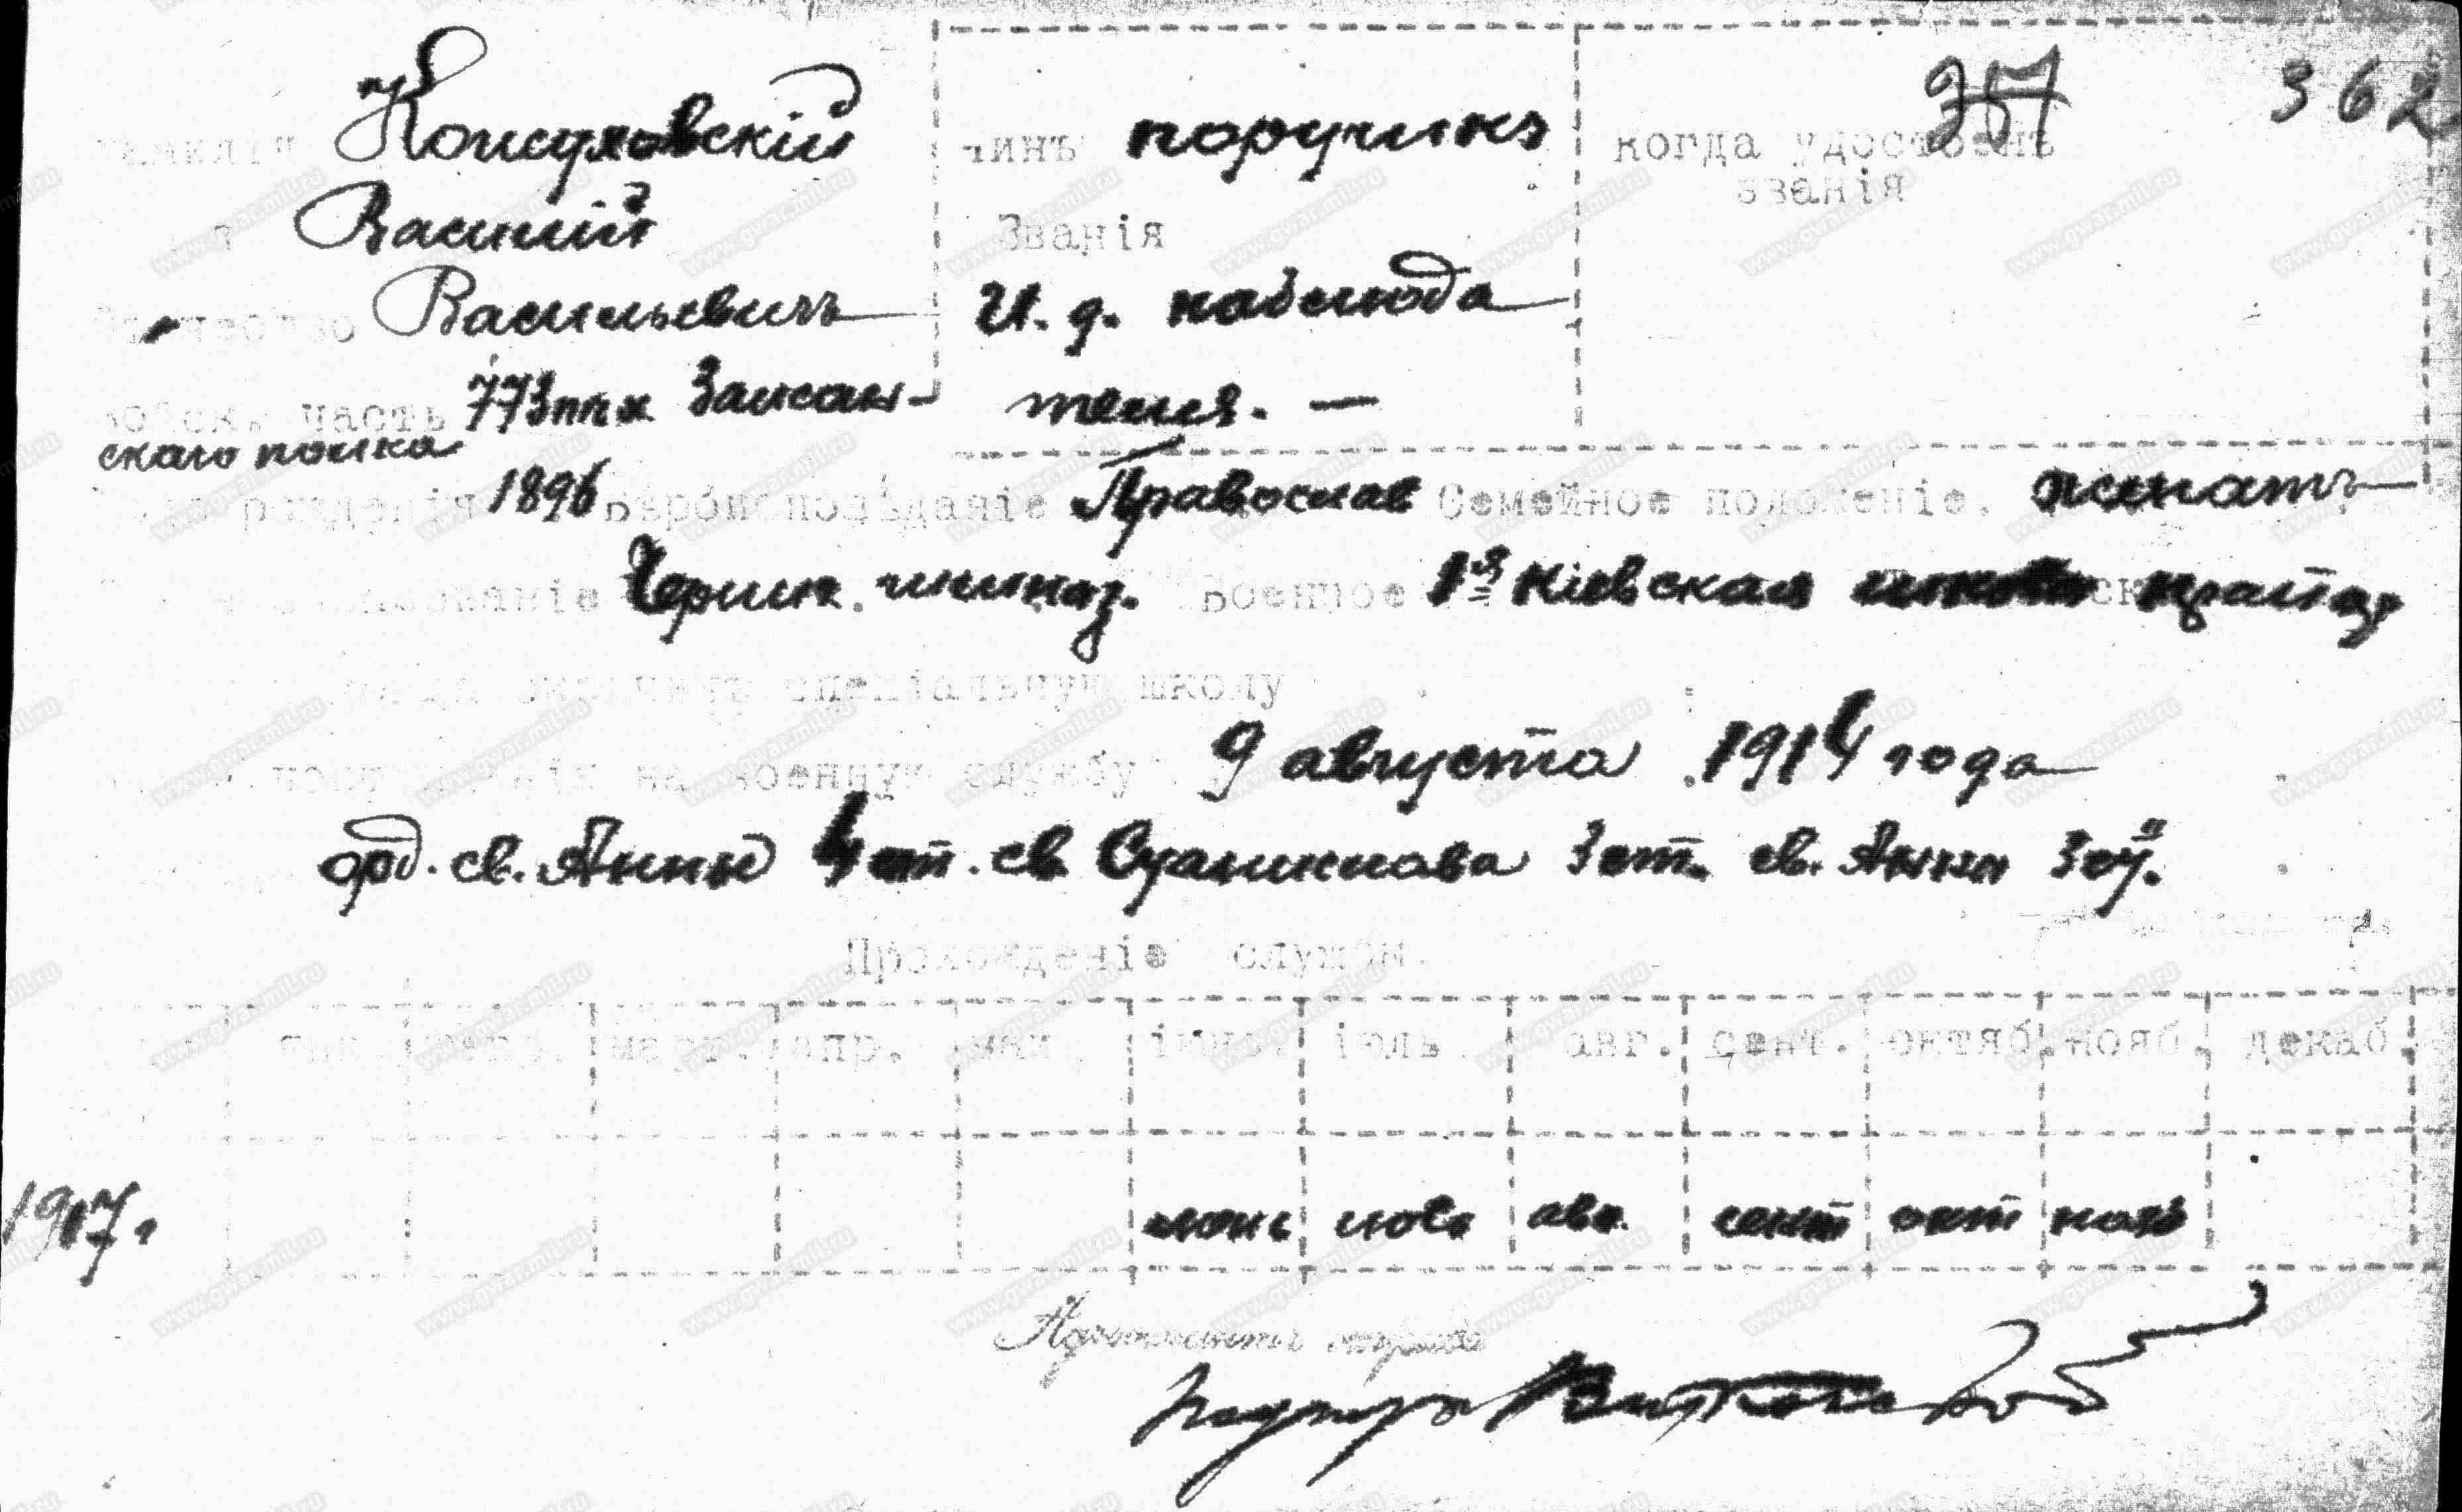 362
Фамилія Кожуховскій чинъ поручикъ когда удостоенъ
званія
Василій Званія
Отчество Васильевичъ И. д. наблюда
Войск. часть 773 пѣх
скаго полка теля. —
рожденія 1896 Вѣроисповѣданіе Православ Семейное положеніе. женатъ
образованіе гимназ. Военное 1я Кіевская школа прапор
спеціальную школу
на военную службу 9 августа 1914 года
орд. св. Анны 4 ст. св. Станислава 3 ст. св. Анны 3 ст.
Прохожденіе службы.
янв. февр. март. апр. май іюнь іюль авг. сент. октяб. нояб. декаб.
1917 г июнь июль авг. сент окт нояб
Адъютантъ отряда